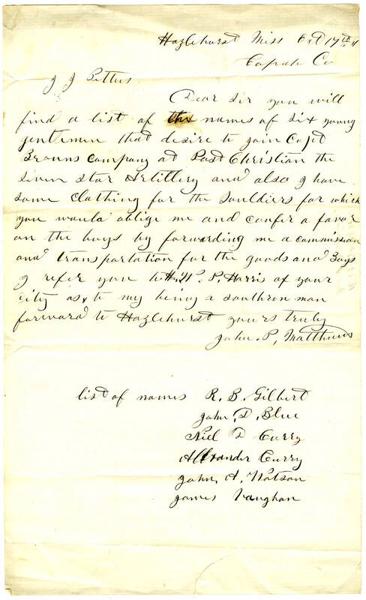 Hazlehurst Miss Oct 17th
Copiah Co
J J Pettus
Dear Sir you will
find a list of the names of six young
gentlemen that desire to join Capt
Browns Company at Pass Christian the
Seven Star Artillery and also I have
some Clothing for the Souldiers for which
you would oblige me and confer a favor
on the boys by forwarding me a commission
and transportation for the goods and Boys
I refer you to P. Harris of your
city as to my being a southron man
forward to Hazlehurst yours truly
John. P. Matthews
list of names R. B. Gilbert
John. D. Blue
Neil D Curry
Allxander Curry
John. A. Watson
James Vaughan